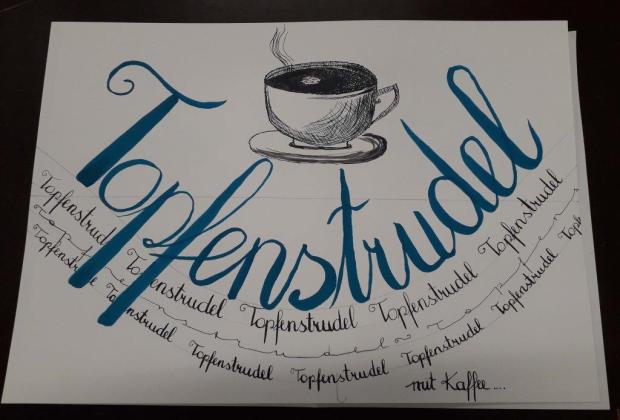 Topfenstrudel
Topfenstrudel Topfenstrudel Topfenstrudel Topfenstrudel Topfenstrudel
Topfenstrudel Topfen
Topfenstrudel Topfenstrudel Topfenstrudel Topfenstrudel Topfenstrudel Topfenstrudel Topf
mit Kaffee....